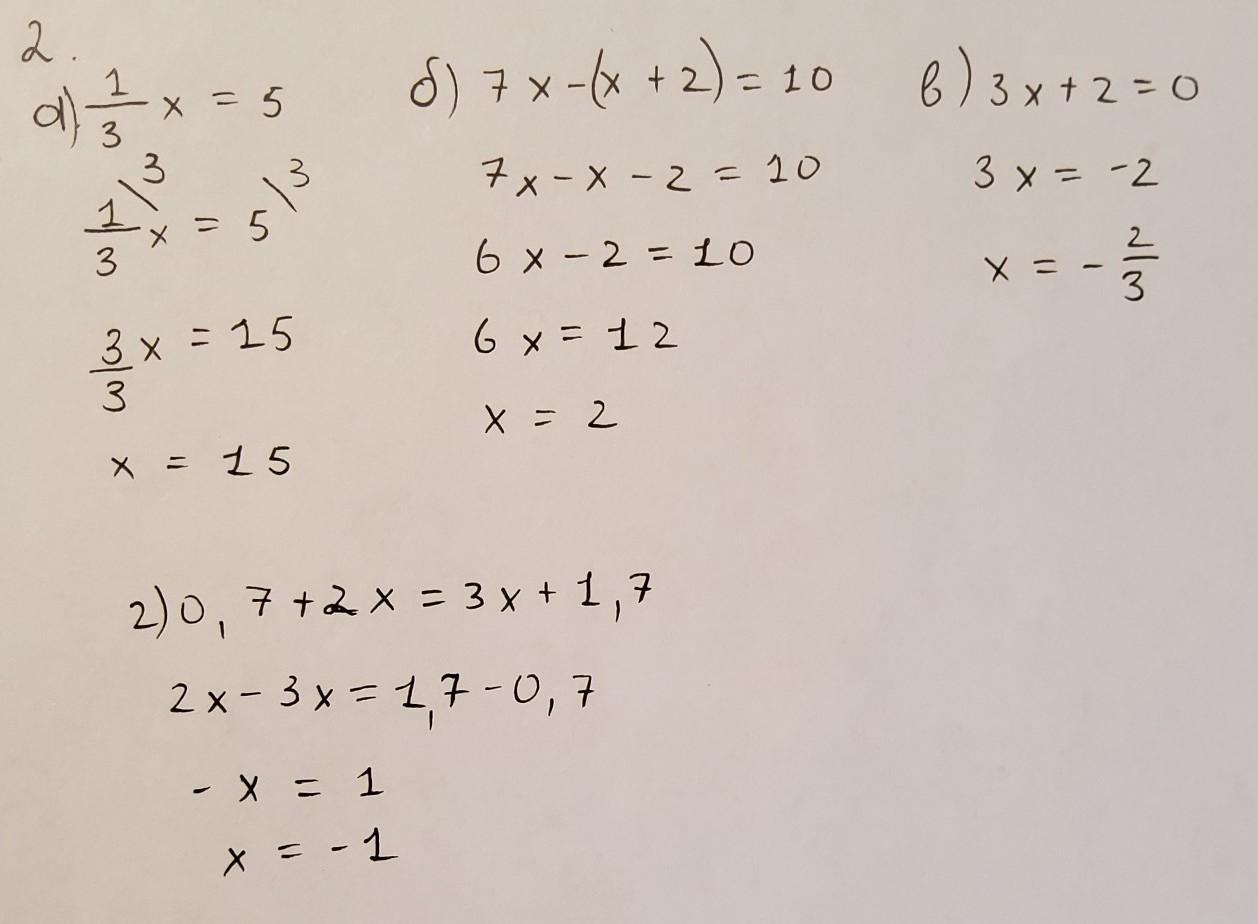 2.
а) 1/3 x = 5
1/3\3 x = 5\3
3/3 x = 15
x = 15
б) 7x-(x+2)=10
7x-x-2=10
6x-2=10
6x=12
x=2
в) 3x+2=0
3x=-2
x=-2/3
г) 0,7+2x=3x+1,7
2x-3x=1,7-0,7
-x=1
x=-1